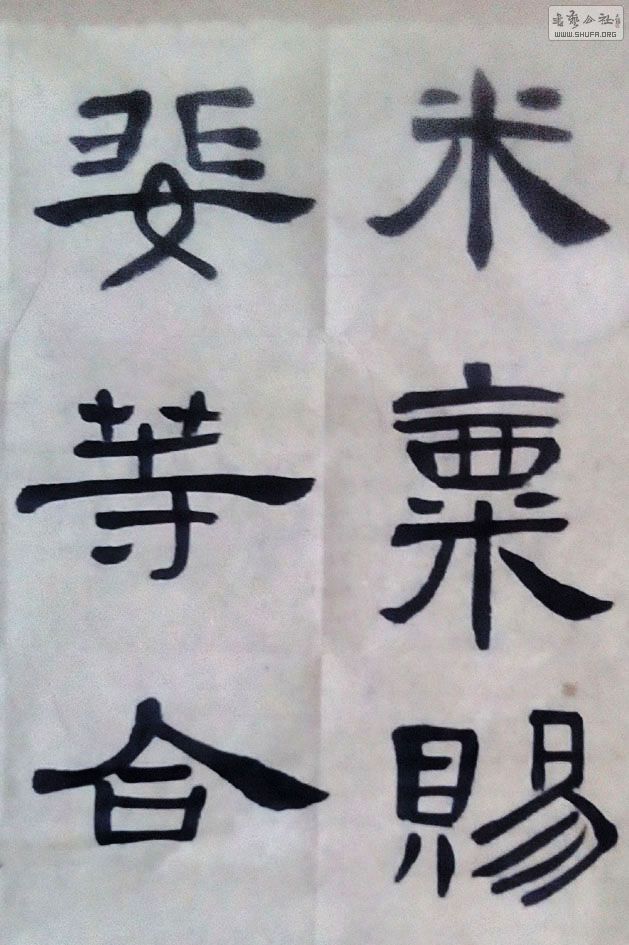 米粟賜
婓等合
書藝公社
WWW.SHUFA.ORG